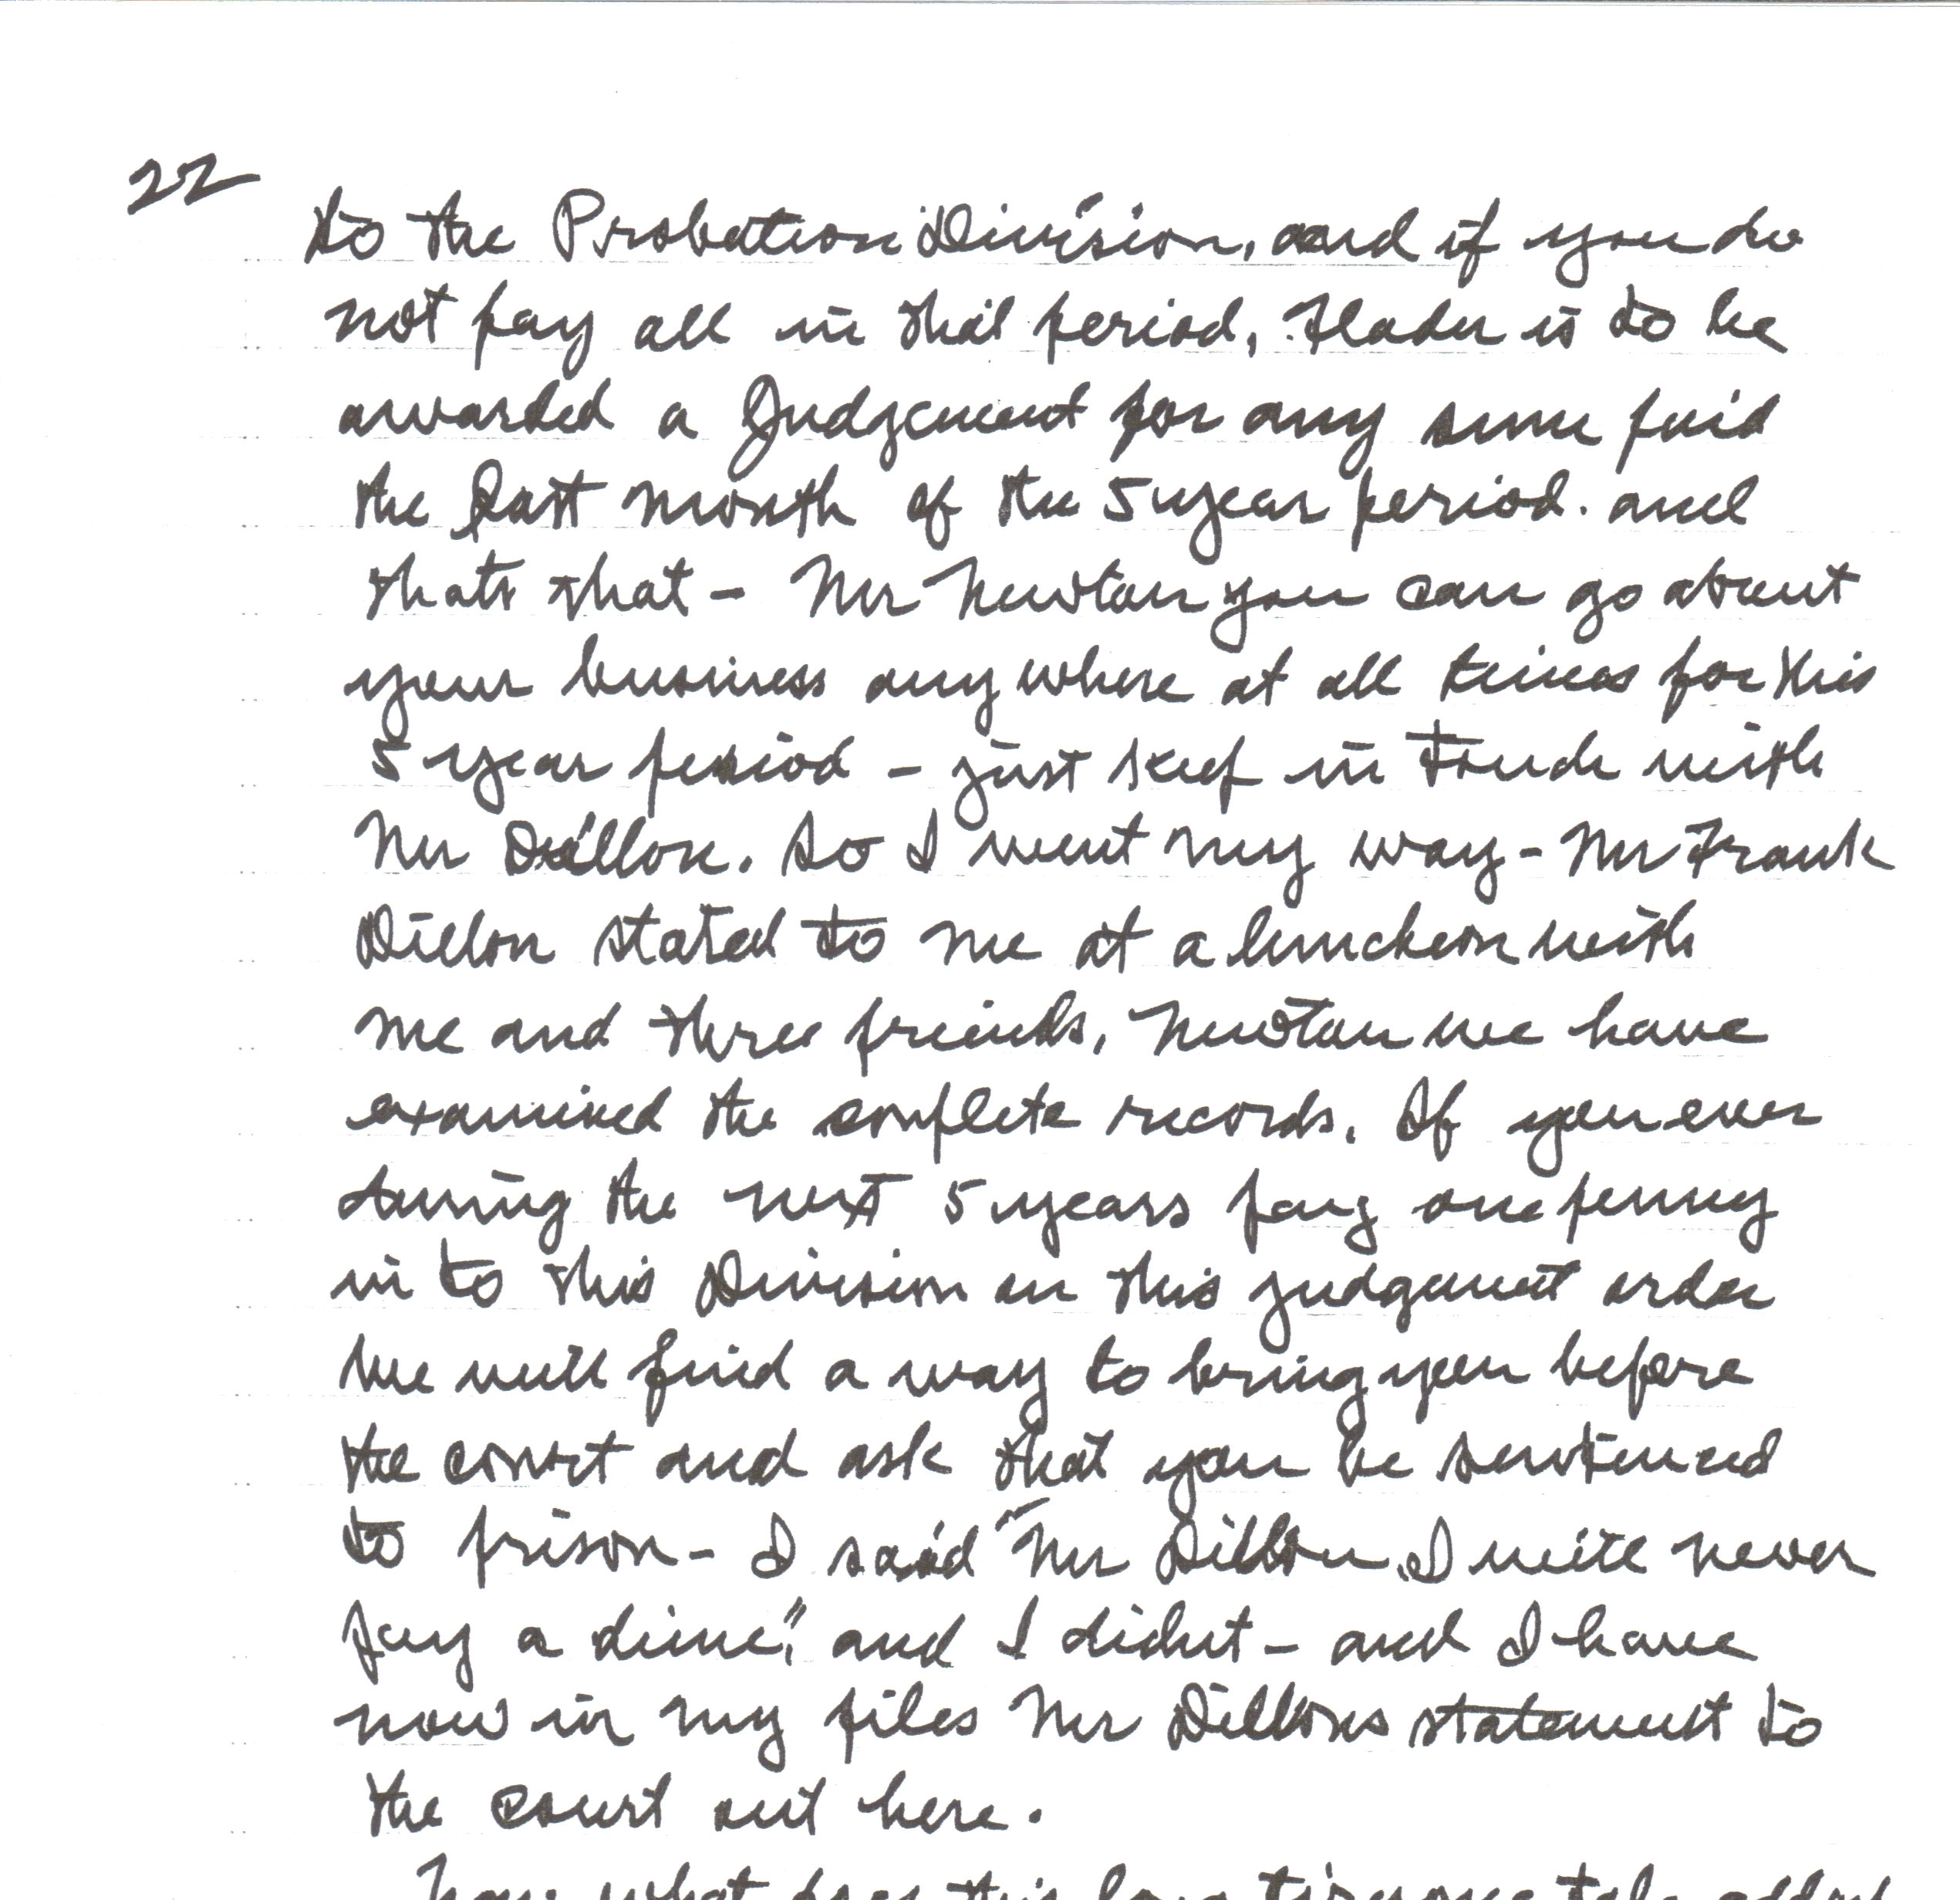 22
to the Probation Division, and if you do
not pay all in that period, Flader is to be
awarded a Judgement for any sum paid
the last month of the 5 year period. and
thats that - Mr Newton you can go about
your business any where at all times for this
5 year period - just keep in touch with
Mr Dillon. So I went my way - Mr Frank
Dillon stated to me at a luncheon with
me and three friends, Newton we have
examined the complete records. If you ever
during the next 5 years pay one penny
in to this Division on this judgment order
we will find a way to bring you before
the court and ask that you be sentenced
to prison - I said "Mr Dillon, I will never
pay a dime," and I didnt - and I have
now in my files Mr Dillons statement to
the court out here.
Now what does this long tiresome tale